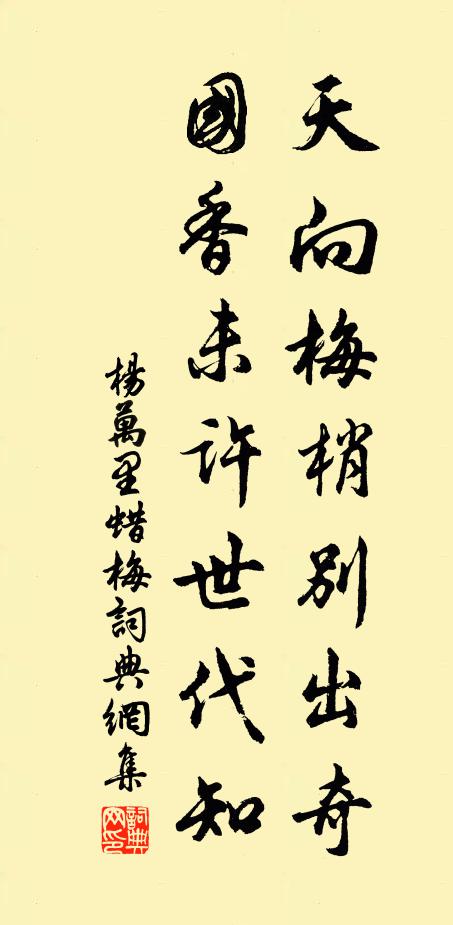 天向梅梢別出奇
國香未許世代知
楊萬里蜡梅詞典網集
詞典網印